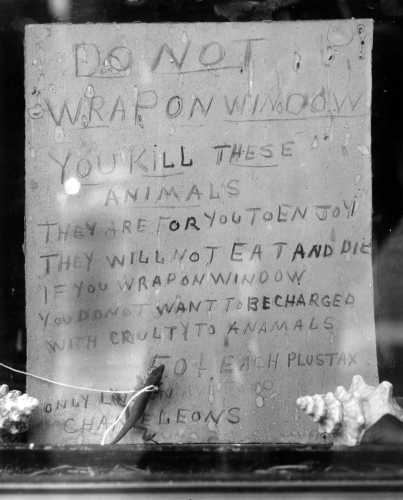 DO NOT
WRAP ON WINDOW
YOU KILL THESE
ANIMALS
THEY ARE FOR YOU TO ENJOY
THEY WILL NOT EAT AND DIE
IF YOU WRAP ON WINDOW
YOU DO NOT WANT TO BE CHARGED
WITH CRULTY TO ANAMALS
50¢ EACH PLUS TAX
ONLY